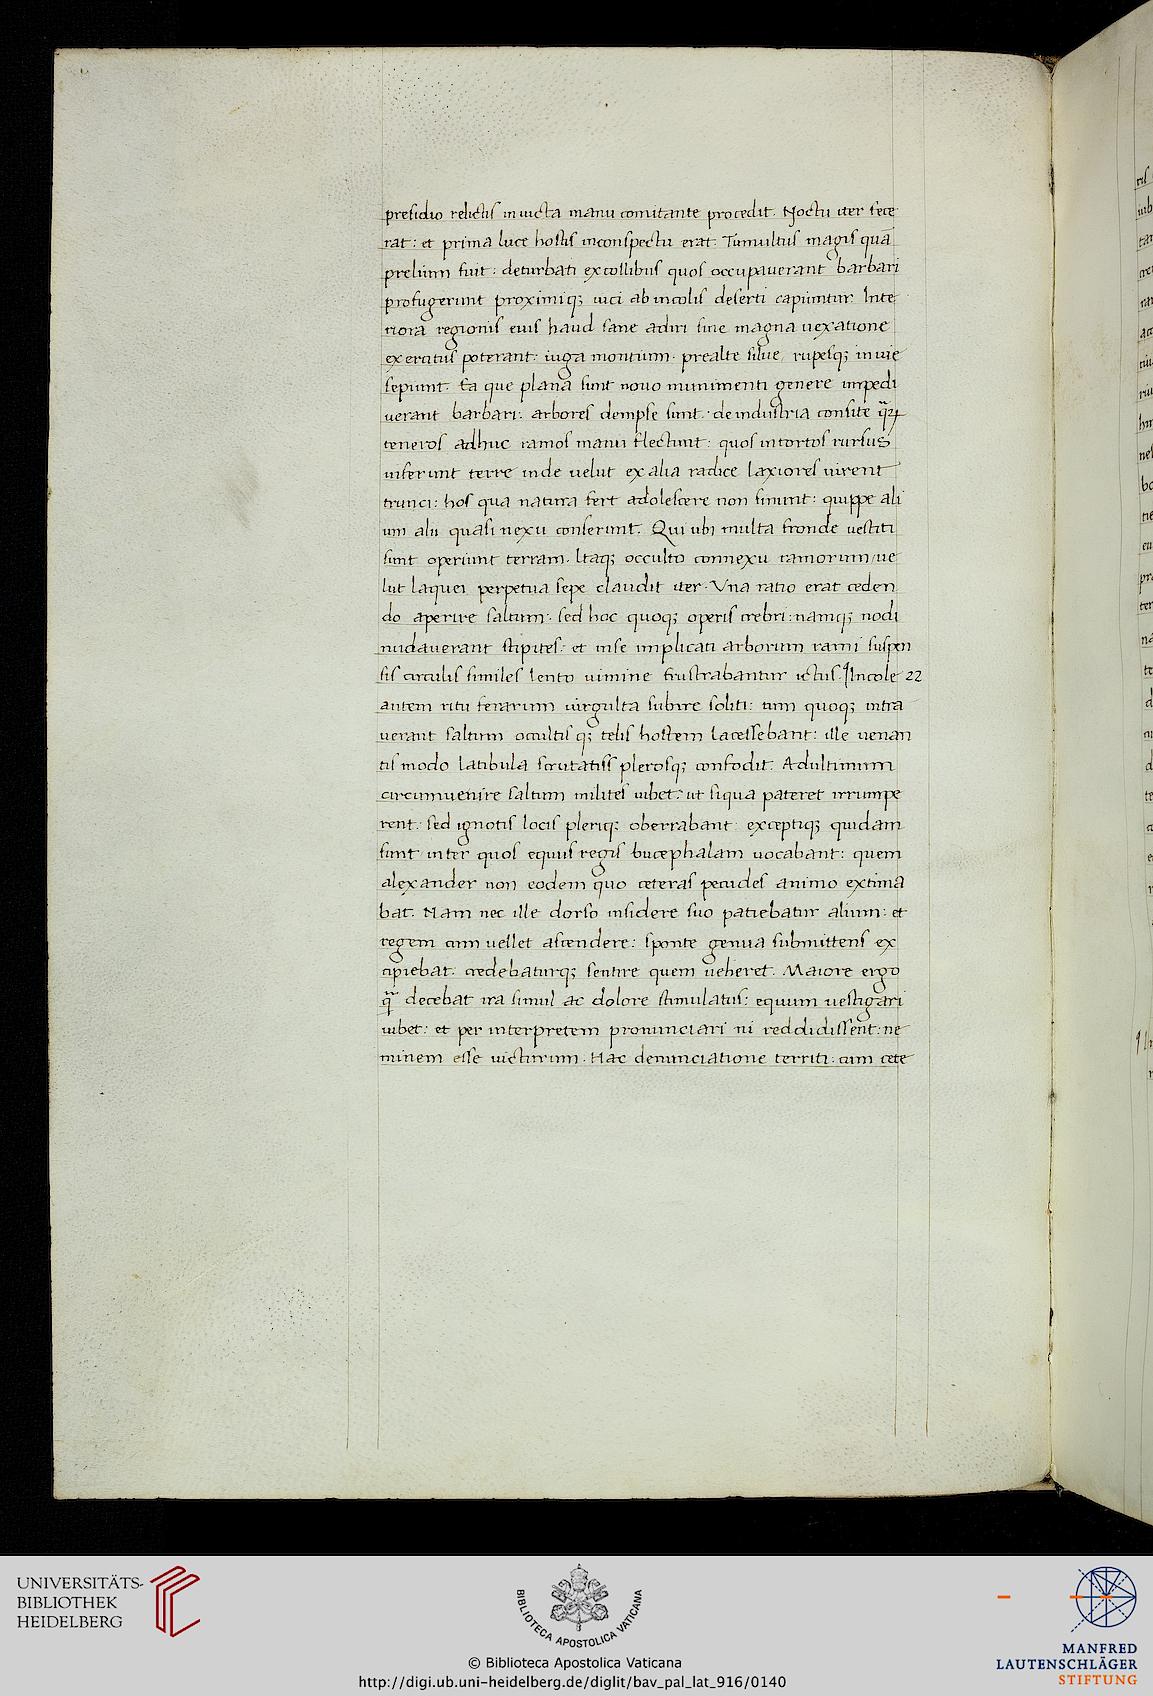 presidio relictis inuicta manu comitante procedit. Noctu iter fece
rat: et prima luce hostis inconspectu erat. Tumultus magis quã
prelium fuit: deturbati excollibus quos occupauerant barbari
profugerunt proximiq; uici abincolis deserti capiuntur. Inte
riora regionis eius haud sane adiri sine magna uexatione
exercitus poterant: iuga montium. prealte silue, rupesq; inuie
sepiunt. Ea que plana sunt nouo munimenti genere impedi
uerant barbari: arbores dempse sunt. deindustria consite q̃ꝝ
teneros adhuc ramos manu flectunt: quos intortos rursus
inserunt terre inde uelut exalia radice laxiores uirent
trunci: hos qua natura fert adolescere non sinunt: quippe ali
um alii quasi nexu conserunt. Qui ubi multa fronde uestiti
sunt operiunt terram. Itaq; occulto connexu ramorum/ue
lut laquei perpetua sepe claudit iter. Una ratio erat ceden
do aperire saltum. sed hoc quoq; operis crebri: namq; nodi
nudauerant stipites: et inse implicati arborum rami suspen
sis circulis similes lento uimine frustrabantur ictus. ¶Incole 22
autem ritu ferarum uirgulta subire soliti: tum quoq; intra
uerant saltum occultis q; telis hostem lacessebant: ille uenan
tis modo latibula scrutatiss plerosq; confodit. Adultimum
circumuenire saltum milites iubet: ut siqua pateret irrumpe
rent. sed ignotis locis pleriq; oberrabant: exceptiq; quidam
sunt inter quos equus regis bucephalam uocabant: quem
alexander non eodem quo ceteras pecudes animo extima
bat. Nam nec ille dorso insidere suo patiebatur alium: et
regem cum uellet ascendere: sponte genua submittens ex
cipiebat. credebaturq; sentire quem ueheret. Maiore ergo
q̃ decebat ira simul ac dolore stimulatus: equum uestigari
iubet: et per interpretem pronunciari ni reddidissent: ne
minem esse uicturum. Hac denunciatione territi: cum cete
UNIVERSITÄTS-
BIBLIOTHEK
HEIDELBERG
BIBLIOTECA APOSTOLICA VATICANA
© Biblioteca Apostolica Vaticana
http://digi.ub.uni-heidelberg.de/diglit/bav_pal_lat_916/0140
MANFRED
LAUTENSCHLÄGER
STIFTUNG